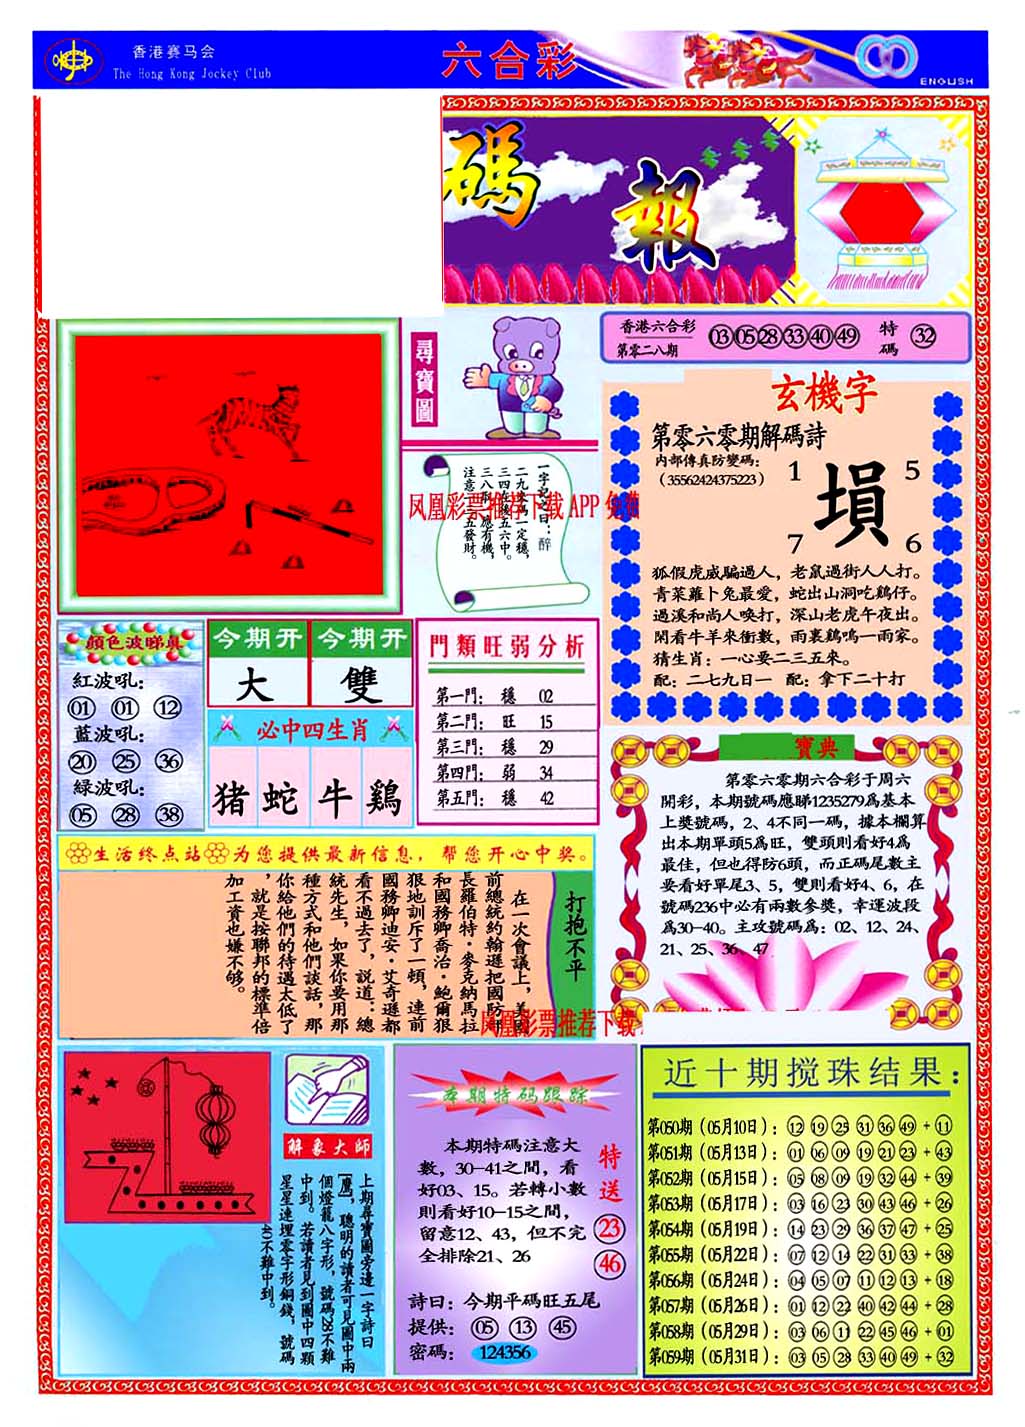 香港赛马会
The Hong Kong Jockey Club
六合彩
ENGLISH
碼報
尋寶圖
香港六合彩
第零二八期
03 05 28 33 40 49
特碼 32
玄機字
第零六零期解碼詩
内部傳真防變碼:
(35562424375223)
1 5
塤
7 6
狐假虎威騙過人，老鼠過街人人打。
青菜蘿卜兔最愛，蛇出山洞吃鷄仔。
過溪和尚人喚打，深山老虎午夜出。
閑看牛羊來衝數，雨裏鷄鳴一兩家。
猜生肖：一心要二三五來。
配：二七九日一 配：拿下二十打
一字記之曰：醉
二九來碼一定穩，
三四在後五六中。
三八取 應有機，
注意 五發財。
凤凰彩票推荐下载 APP 免费
顔色波睇真
紅波吼：
01 01 12
藍波吼：
20 25 36
緑波吼：
05 28 38
今期开 今期开
大 雙
必中四生肖
猪 蛇 牛 鷄
門類旺弱分析
第一門： 穩 02
第二門： 旺 15
第三門： 穩 29
第四門： 弱 34
第五門： 穩 42
寶典
第零六零期六合彩于周六
開彩，本期號碼應睇1235279爲基本
上獎號碼，2、4不同一碼，據本欄算
出本期單頭5爲旺，雙頭則看好4爲
最佳，但也得防6頭，而正碼尾數主
要看好單尾3、5，雙則看好4、6，在
號碼236中必有兩數參獎，幸運波段
爲30-40。主攻號碼爲：02、12、24、
21、25、36、47
生活终点站 为您提供最新信息，帮您开心中奖。
打抱不平
在一次會議上，美國
前總統約翰遜把國防部
長羅伯特·麥克納馬拉
和國務卿喬治·鮑爾狠
狠地訓斥了一頓，連前
國務卿迪安·艾奇遜都
看不過去了，説道：總
統先生，如果你要用那
種方式和他們談話，那
你給他們的待遇太低了
，就是按聯邦的標準倍
加工資也嫌不够。
凤凰彩票推荐下载
解象大師
上期尋寶圖旁邊一字詩曰
[鷹]，聰明的讀者可見圖中兩
個燈籠八字形，號碼28不難
中到。若讀者見到圖中四顆
星星連埋零字形銅錢，號碼
40不難中到。
本期特码跟踪
本期特碼注意大
數，30-41之間，看
好03、15。若轉小數
則看好10-15之間，
留意12、43，但不完
全排除21、26
特送
23
46
詩曰：今期平碼旺五尾
提供： 05 13 45
密碼： 124356
近十期搅珠结果：
第050期（05月10日）：12 19 25 31 36 49 + 11
第051期（05月13日）：01 06 09 19 21 23 + 43
第052期（05月15日）：05 08 09 19 32 44 + 39
第053期（05月17日）：03 16 23 30 43 46 + 26
第054期（05月19日）：14 23 29 36 37 47 + 25
第055期（05月22日）：07 12 14 22 31 33 + 38
第056期（05月24日）：04 05 07 11 12 13 + 18
第057期（05月26日）：01 12 22 40 42 44 + 28
第058期（05月29日）：03 06 11 22 45 46 + 01
第059期（05月31日）：03 05 28 33 40 49 + 32